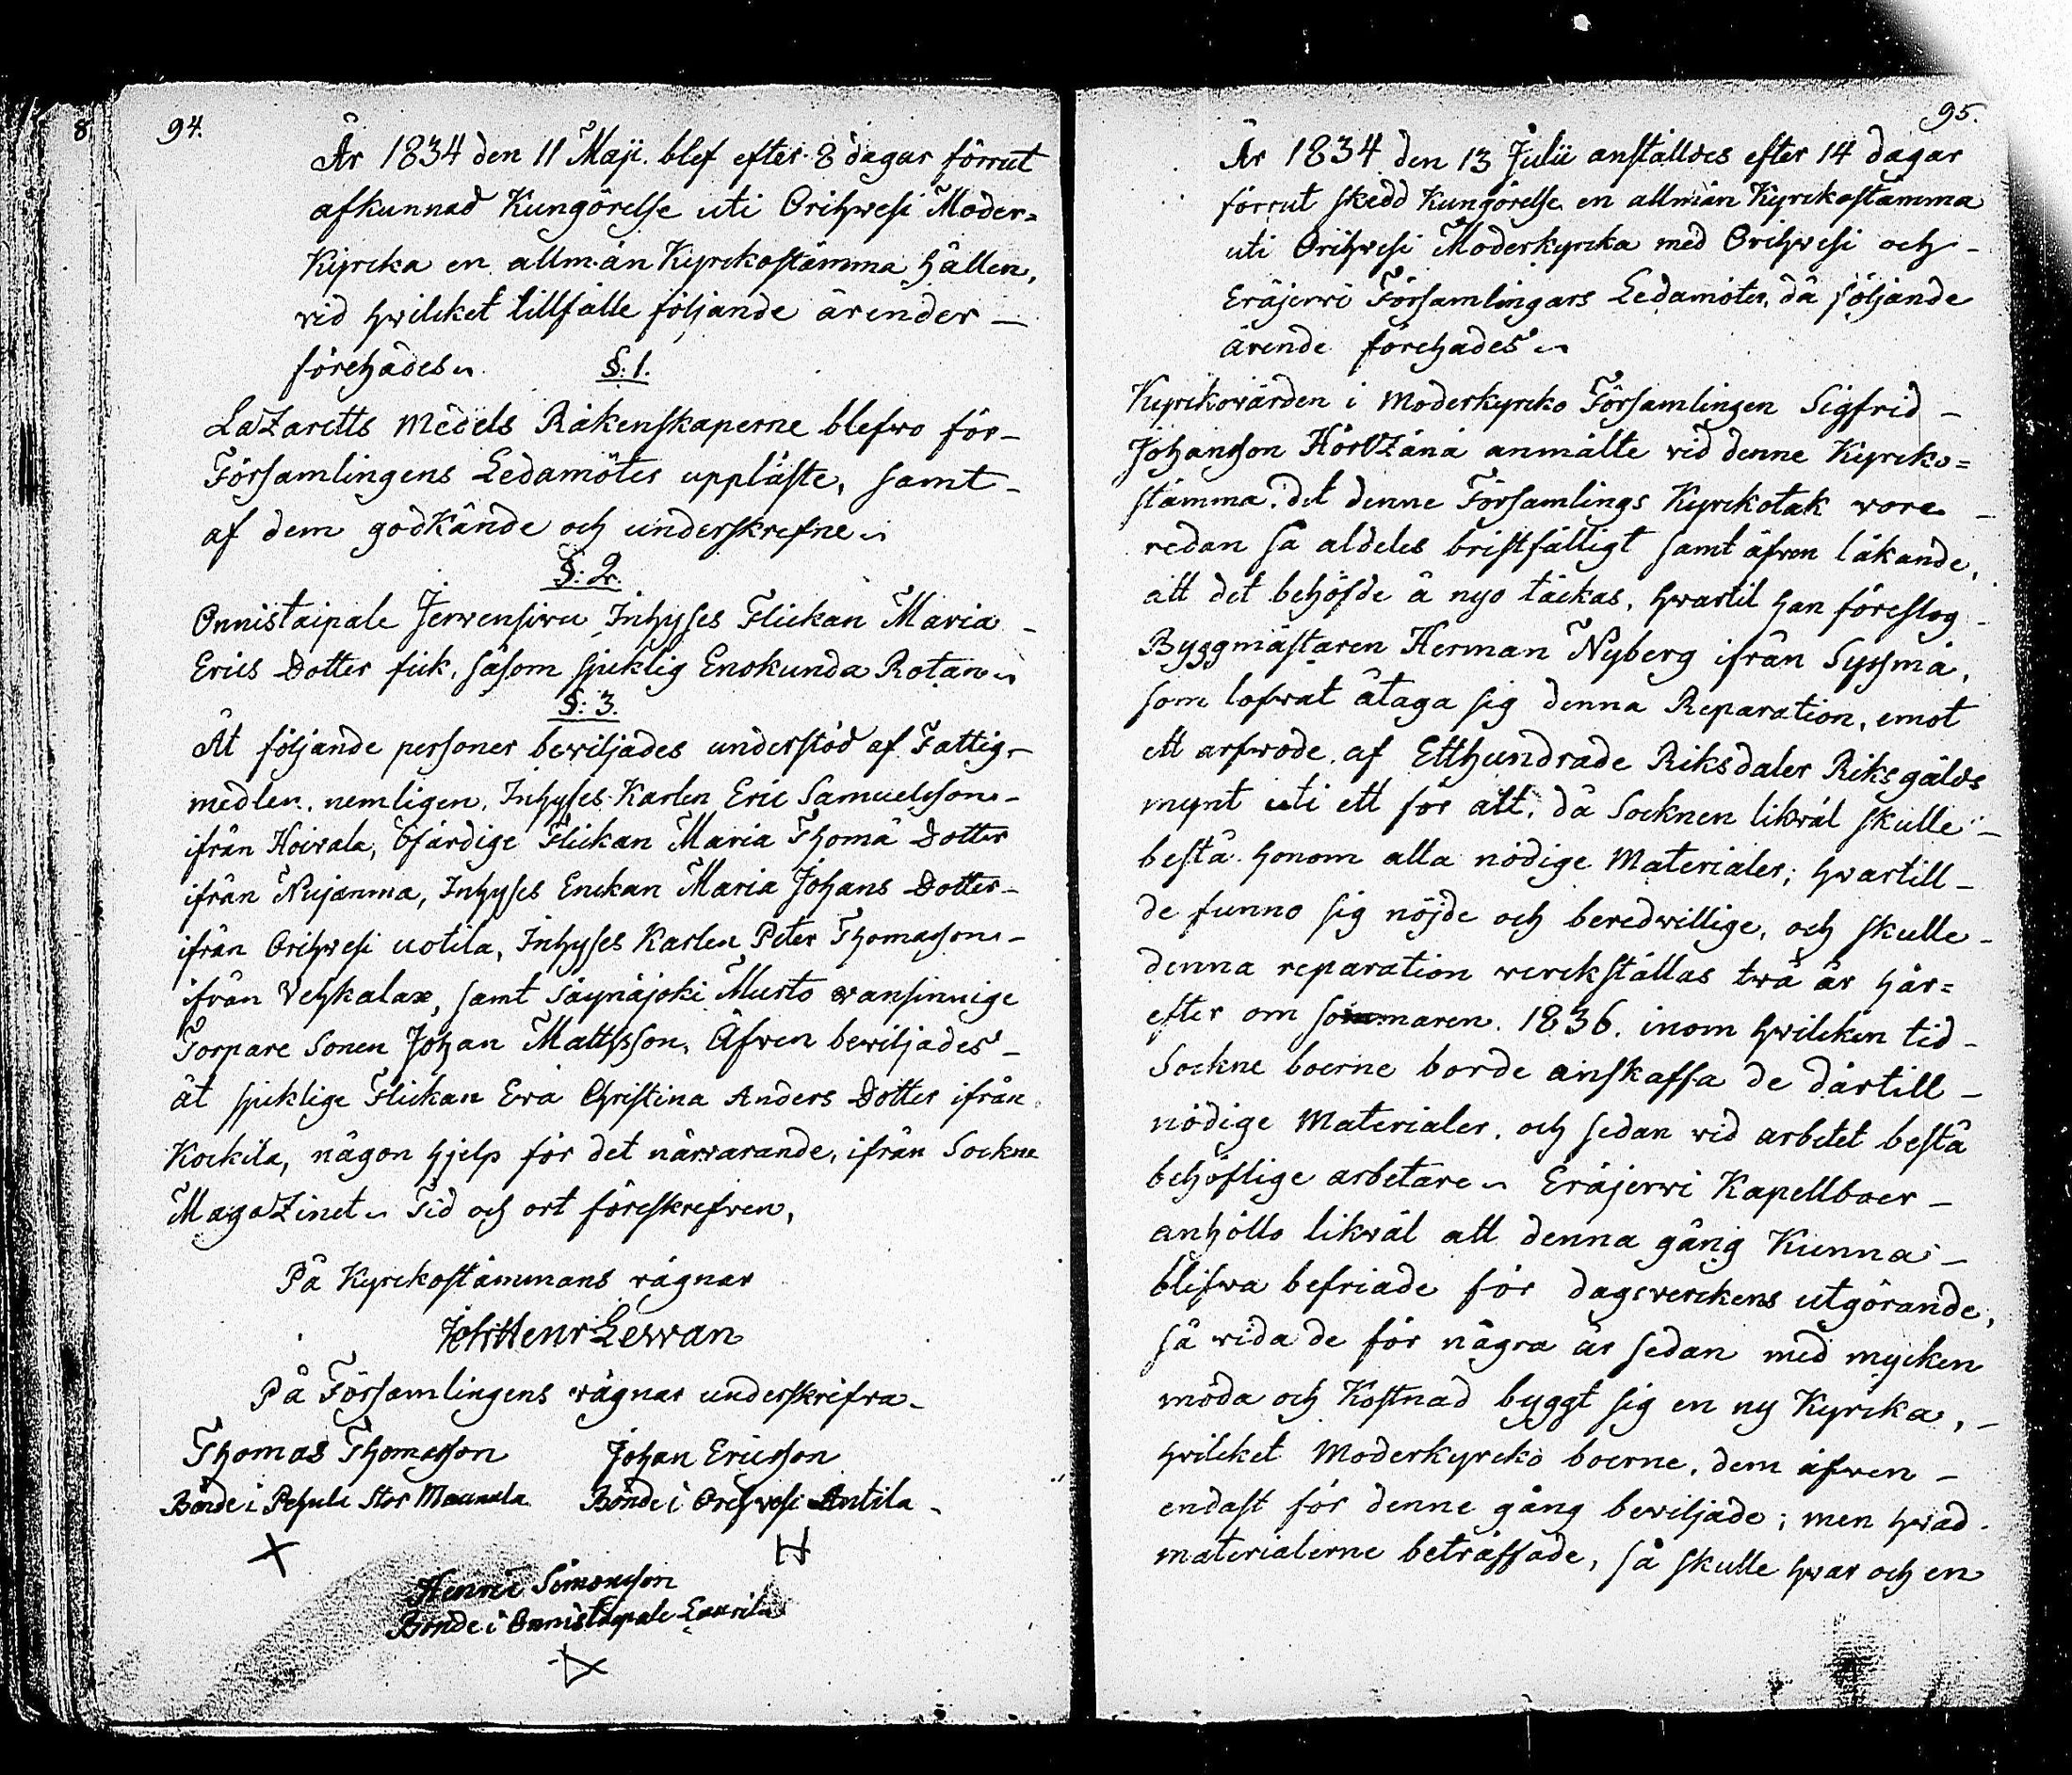 94.
År 1834 den 11 Maji. blef efter 8 dagar förrut
afkunnad Kungörelse uti Orihwesi Moder=
Kyrcka en allmän Kyrckostämma hållen,
vid hwilcket tillfälle följande ärender —
förehades.
§: 1.
LaZaretts medels Räkenskaperne blefvo för —
Församlingens Ledamöter uppläste, samt —
af dem godkände och underskrefne
§: 2.
Onnistaipale Jervensivu Inhyses Flickan Maria —
Erics Dotter fick, såsom sjuklig Enokunda Rotan
§: 3.
Åt följande personer beviljades understöd af Fattig-
medlen. nemligen, Inhyses Karlen Eric Samuelsson —
ifrån Hoivala, Ofärdige Flickan Maria Thomä Dotter
ifrån Nujanma, Inhyses Enckan Maria Johans Dotter —
ifrån Orihwesi uotila, Inhyses Karlen Peter Thomasson —
ifrån Vehkalax, samt Säynäjoki Musto vansinnige
Torpare Sonen Johan Mattsson, Äfven beviljades —
åt sjuklige Flickan Eva Christina Anders Dotter ifrån
Kockila, någon hjelp för det närvarande, ifrån Sockne
MagaZinet. Tid och ort föreskrefven,
På Kyrckostämmans vägnar
Joh: Henr Levvan
På Församlingens vägnar underskrifva —
Thomas Thomasson Johan Ericsson
Bonde i Pehula Stor Maunula Bonde i Orihwesi Antila
Henric Simonsson
Bonde i Onnistaipale Laurila
95.
År 1834 den 13 Julii anställdes efter 14 dagar
förrut skedd Kungörelse en allmän Kyrckostämma
uti Orihwesi Moderkyrcka med Orihwesi och —
Eräjervi Församlingars Ledamöter, då följande
ärende förehades
Kyrckovärden i Moderkyrcko Församlingen Sigfrid —
Johansson Hörtzänä anmälte vid denne Kyrcko=
stämma. det denne Församlings Kyrckotak vore —
redan så aldeles bristfälligt samt äfven läkande,
att det behöfde å nyo täckas, hwartil han föreslog —
Byggmästaren Herman Nyberg ifrån Sysmä,
som lofvat åtaga sig denna Reparation, emot
ett arfvode. af Etthundrade Riksdaler Riksgälds
mynt uti ett för allt. då Socknen likväl skulle —
bestå honom alla nödige Materialer; hwartill —
de funno sig nöjde och beredvillige, och skulle —
denna reparation verckställas två år här=
efter om sommaren 1836. inom hwilcken tid —
Sockne boerne borde anskaffa de därtill —
nödige Materialer. och sedan vid arbetet bestå
behöflige arbetare. Eräjervi Kapellboer —
anhöllo likväl att denna gång Kunna —
blifva befriade för dagsverckens utgörande,
så vida de för några år sedan med mycken
möda och Kostnad byggt sig en ny Kyrcka, —
hvilcket Moderkyrcko boerne. dem äfven —
endast för denne gång beviljade; men hvad
materialerne beträffade, så skulle hvar och en